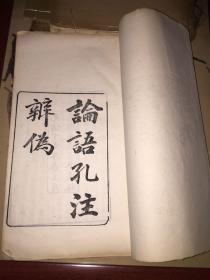 論語孔注
辨偽